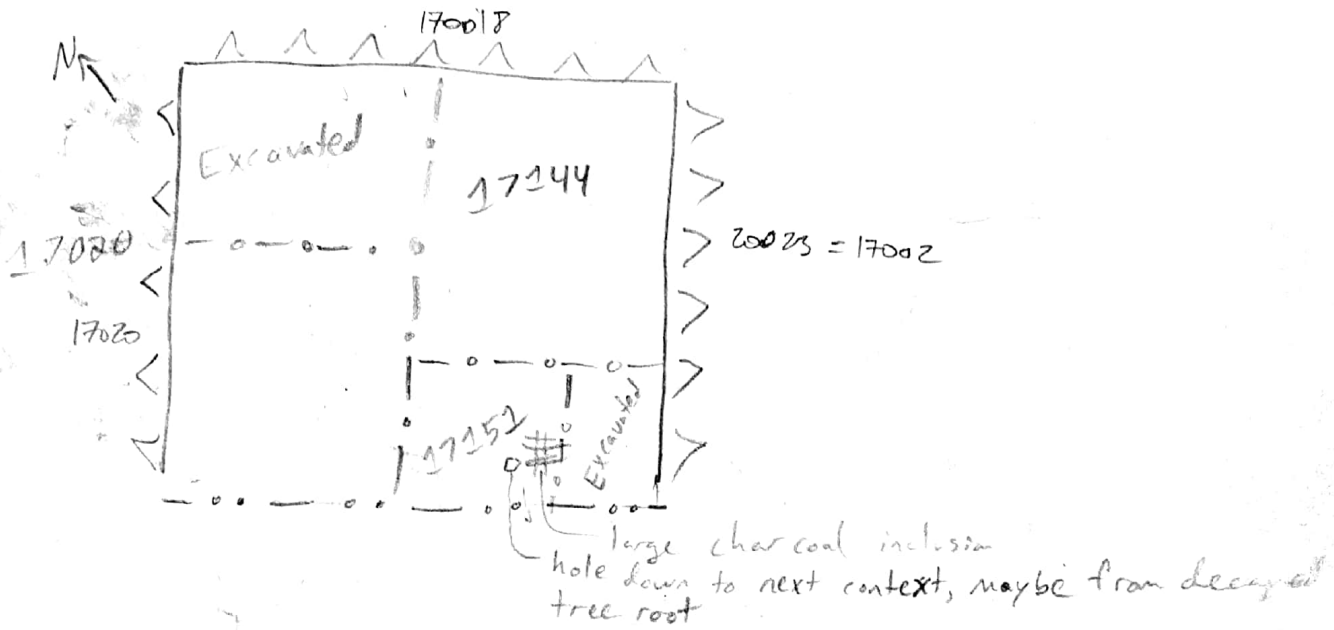 170018
N
Excavated
17144
17020
20023 = 17002
17020
17151
Excavated
large charcoal inclusion
hole down to next context, maybe from decayed
tree root